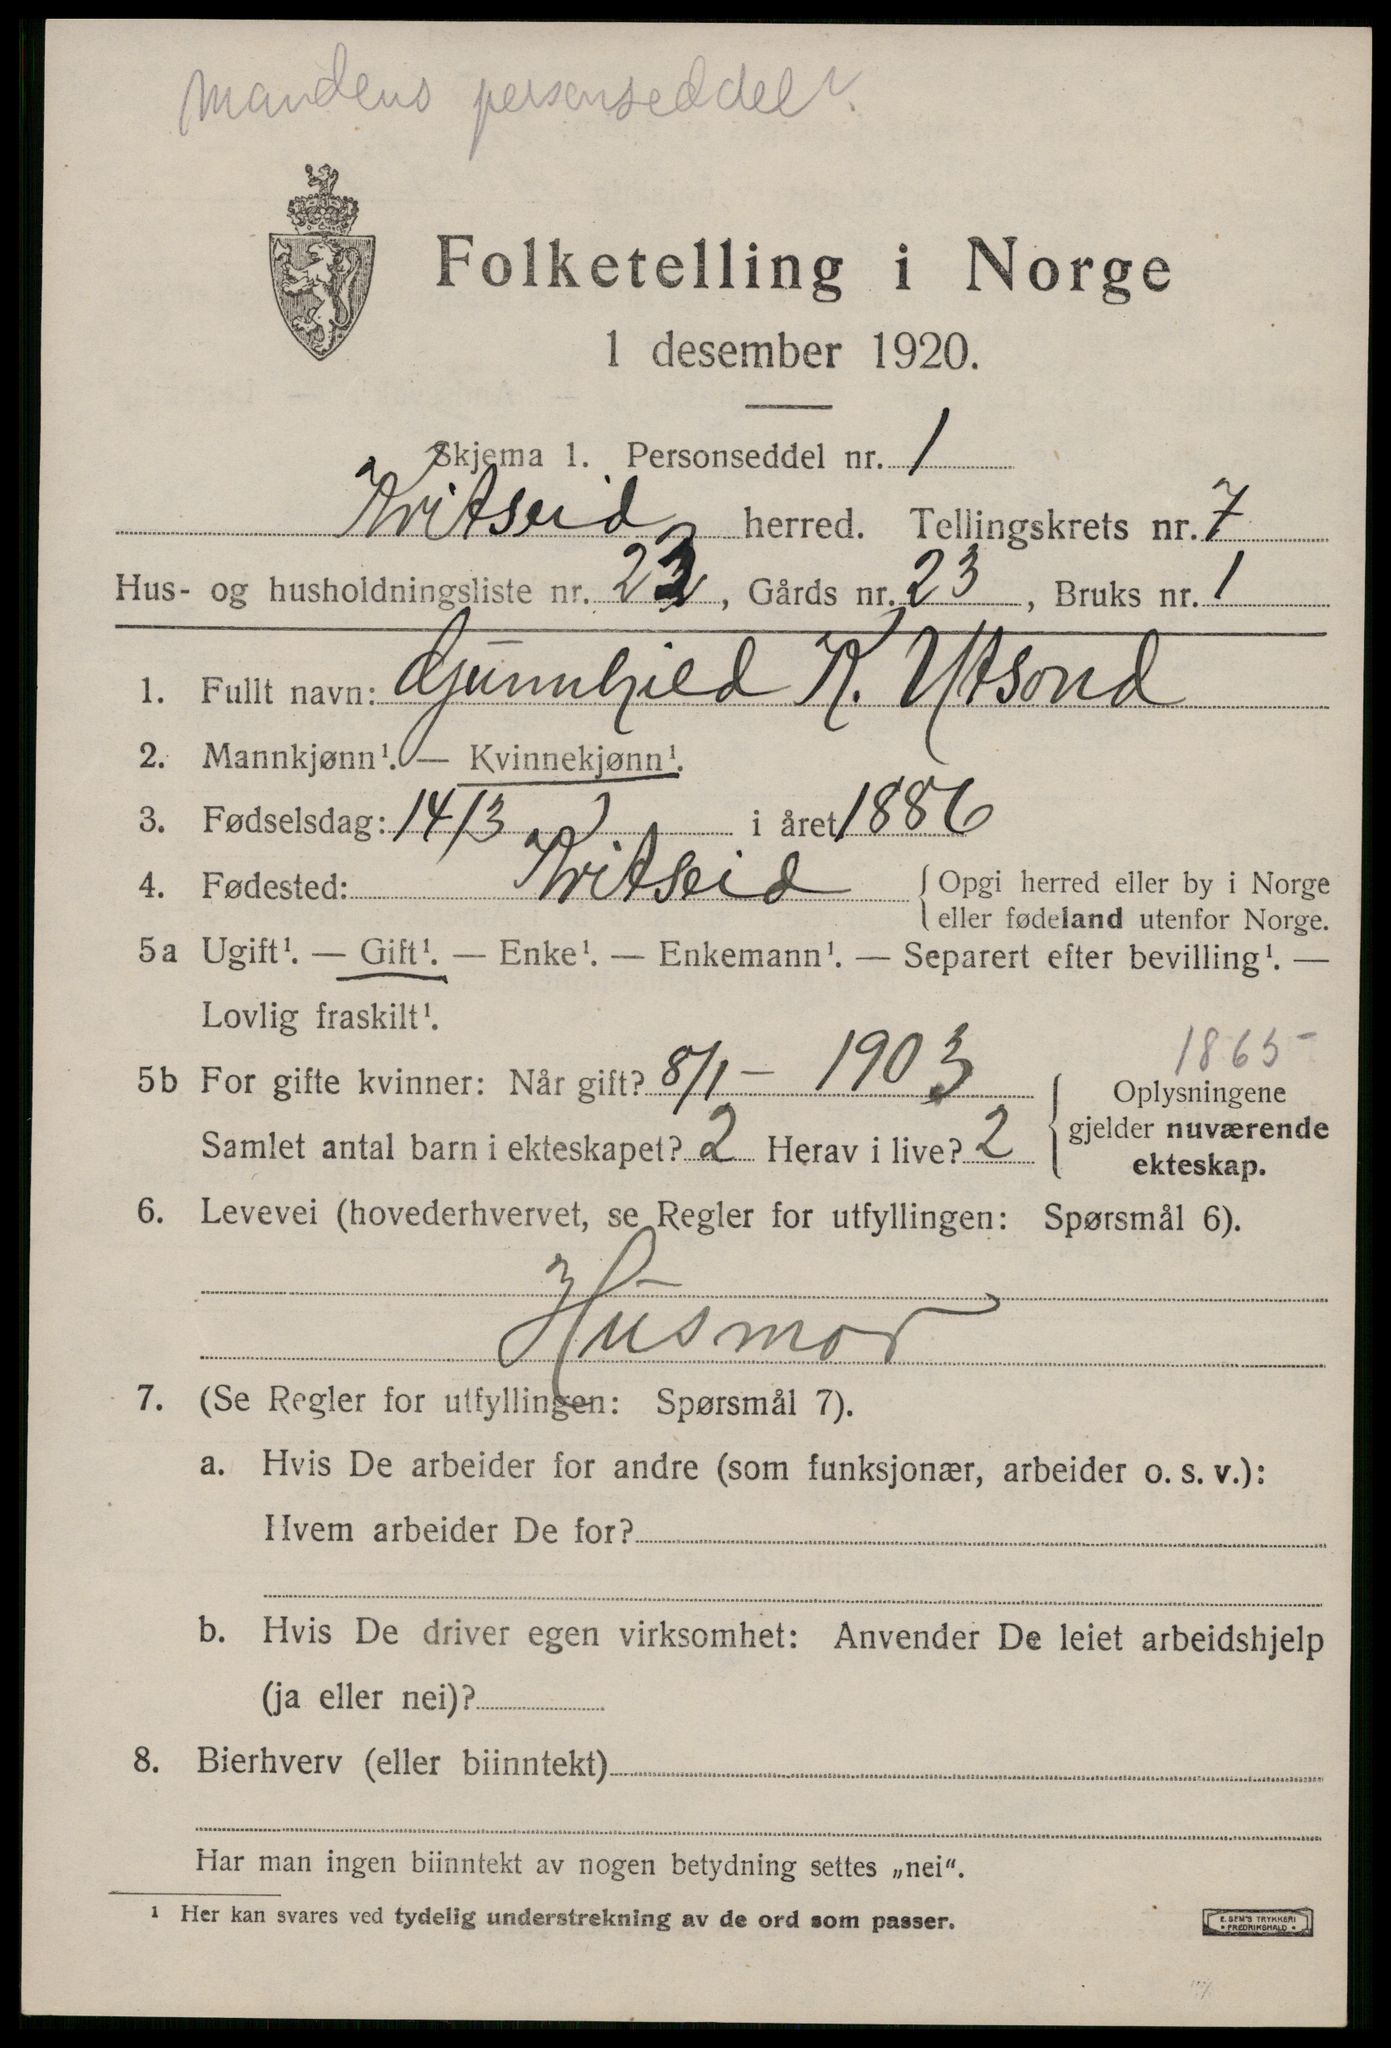 Mandens personseddel v.
Folketelling i Norge
1 desember 1920.
Skjema 1. Personseddel nr. 1
Kvitseid herred. Tellingskrets nr. 7
Hus- og husholdningsliste nr. 23, Gårds nr. 23, Bruks nr. 1
1. Fullt navn: Gunnhild K. Utsond
2. Mannkjønn¹. — Kvinnekjønn¹.
3. Fødselsdag: 14/3 i året 1886
4. Fødested: Kvitseid { Opgi herred eller by i Norge
eller fødeland utenfor Norge.
5a Ugift¹. — Gift¹. — Enke¹. — Enkemann¹. — Separert efter bevilling¹. —
Lovlig fraskilt¹.
1865
5b For gifte kvinner: Når gift? 8/1 – 1903
Samlet antal barn i ekteskapet? 2 Herav i live? 2
Oplysningene
gjelder nuværende
ekteskap.
6. Levevei (hovederhvervet, se Regler for utfyllingen: Spørsmål 6).
Husmor
7. (Se Regler for utfyllingen: Spørsmål 7).
a. Hvis De arbeider for andre (som funksjonær, arbeider o. s. v.):
Hvem arbeider De for?
b. Hvis De driver egen virksomhet: Anvender De leiet arbeidshjelp
(ja eller nei)?
8. Bierhverv (eller biinntekt)
Har man ingen biinntekt av nogen betydning settes „nei“.
¹ Her kan svares ved tydelig understrekning av de ord som passer.
E. SEM'S TRYKKERI
FREDRIKSHALD